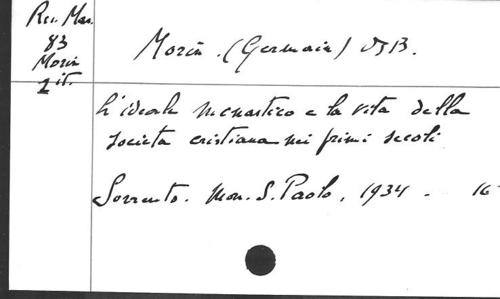 Rev. Mon.
83
Morin
2 it.
Morin. (Germain) OSB.
L'ideale monastico e la vita della
società cristiana nei primi secoli
Sorrento. Mon. S. Paolo, 1934 - 16